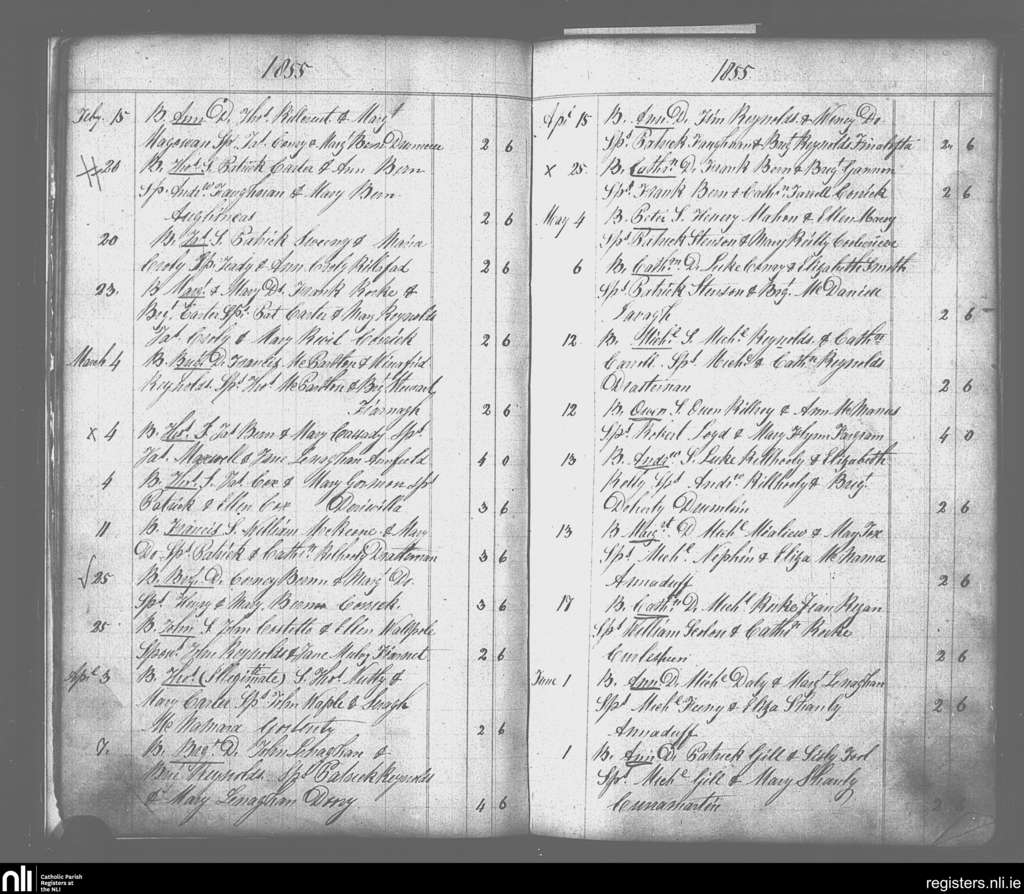 1855
Feby. 15 B. Ann D. Thos. Killerout & Margt.
Magowan Sps. Jas. Conry & Margt. Beirn Drumree
20 B. Thos. S. Patrick Carter & Ann Bern
Sp. Andw. Faughnan & Mary Bern
2 6
20 B. Jas. S. Patrick Sweeny & Maria
Croly Sps. Teady & Ann Croly Killafad 2 6
23. B Marg. & Mary Ds. Frank Rorke &
Brig. Carter Sps. Pat Carter & Mary Reynolds
Jas. Croly & Mary Revil Corrick 2 6
March 4 B. Brid. D. Francis McPartlon & Winifrid
Reynolds. Sps. Thos. McPartlon & Brig. Stewart
Fiarnagh 2 6
x 4 B. Thos. S. Jas. Bern & Mary Cassady Sps.
Jas. Maxwell & Jane Lenaghan Annfield 4 0
4 B. Thos. S. Jas. Cox & Mary Gormon Sps.
Patrick & Ellen Cox 3 6
11 B. Francis S. William McKeone & Mary
Do. Sps. Patrick & Cathn. Drattinan 3 6
25 B. Brig. D. Corney Beirn & Margt. Do.
Sps. Henry & Mary Beirn Corrick. 3 6
25 B. John S. John Costello & Ellen Wallpole
Spons. John Reynolds & Jane 2 6
Apl. 3 B. Thos. (Illegitimate) S. Thos. Nutly &
Mary Carter Sps. John Maple & Seragh
McNamara Gortinty 2 6
7. B. Brigt. D. John Lenaghan &
Reynolds. Sps. Patrick Reynolds
& Mary Lenaghan Doory 4 6
1855
Apl. 15 B. Ann D. Jim Reynolds & Winey Do
Sps. Patrick Faughnan & Brig Reynolds Finalofta 2 6
x 25. B. Cathn. D. Frank Bern & Brig. Gannon
Sps. Frank Bern & Cathn. Farrell Corrick 2 6
May 4 B. Peter S. Henery Mahon & Ellen
Sps. Patrick Stenson & Mary Reilly
6 B. Cathn. D. Luke Conry & Elizabeth Smith
Sps. Patrick Stenson & Brig. McDaniell
Lavagh 2 6
12 B. Michl. S. Michl. Reynolds & Cathn.
Carroll. Sps. Michl. & Cathn. Reynolds
Drattinan 2 6
12 B. Owen S. Owen Killroy & Ann McManus
Sps. Robert Loyd & Mary Flynn 4 0
13 B. Andw. S. Luke Killhooly & Elizabeth
Kelly Sps. Andw. Killhooly & Brig.
Doherty Drumlun 2 6
13 B. Margt. D Michl. & Mary Fox
Sps. Michl. Nephin & Eliza McNama
Annaduff 2 6
17 B. Cathn. D. Michl. Rorke Jean Regan
Sps. William Sexton & Cathn. Rorke
2 6
June 1 B. Ann D. Michl. Daly & Margt. Lenaghan
Sps. Michl. Feeny & Eliza Shanly 2 6
Annaduff
1 B. Ann D. Patrick Gill & Sisly
Sps. Michl. Gill & Mary Shanly
Cunamartin 2 6
nli Catholic Parish
Registers at
the NLI
registers.nli.ie